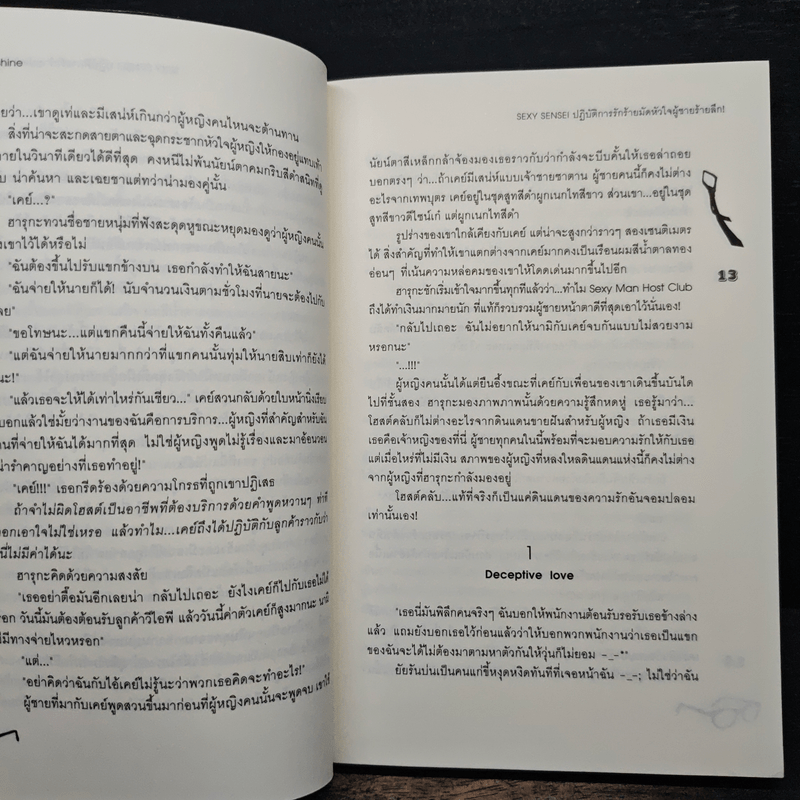 hine
ยว่า...เขาดูเท่และมีเสน่ห์เกินกว่าผู้หญิงคนไหนจะต้านทาน
สิ่งที่น่าจะสะกดสายตาและฉุดกระชากหัวใจผู้หญิงให้กองอยู่แทบเท้า
ายในวินาทีเดียวได้ดีที่สุด คงหนีไม่พ้นนัยน์ตาคมกริบสีดำสนิทที่ดู
บ น่าค้นหา และเฉยชาแต่ทว่าน่ามองคู่นั้น
"เคย์...?"
ฮารุกะทวนชื่อชายหนุ่มที่ฟังสะดุดหูขณะหยุดมองดูว่าผู้หญิงคนนั้น
งเขาไว้ได้หรือไม่
"ฉันต้องขึ้นไปรับแขกข้างบน เธอกำลังทำให้ฉันสายนะ"
"ฉันจ่ายให้นายก็ได้! นับจำนวนเงินตามชั่วโมงที่นายจะต้องไปกับ
ลย"
"ขอโทษนะ...แต่แขกคืนนี้จ่ายให้ฉันทั้งคืนแล้ว"
"แต่ฉันจ่ายให้นายมากกว่าที่แขกคนนั้นทุ่มให้นายสิบเท่าก็ยังได้
นะ!"
"แล้วเธอจะให้ได้เท่าไหร่กันเชียว..." เคย์สวนกลับด้วยใบหน้านิ่งเรียบ
บอกแล้วใช่มั้ยว่างานของฉันคือการบริการ...ผู้หญิงที่สำคัญสำหรับฉัน
นที่จ่ายให้ฉันได้มากที่สุด ไม่ใช่ผู้หญิงพูดไม่รู้เรื่องและมาอ้อนวอน
น่ารำคาญอย่างที่เธอทำอยู่!"
"เคย์!!!" เธอกรีดร้องด้วยความโกรธที่ถูกเขาปฏิเสธ
ถ้าจำไม่ผิดโฮสต์เป็นอาชีพที่ต้องบริการด้วยคำพูดหวานๆ ทำที
อกเอาใจไม่ใช่เหรอ แล้วทำไม...เคย์ถึงได้ปฏิบัติกับลูกค้าราวกับว่า
นี้ไม่มีค่าได้นะ
ฮารุกะคิดด้วยความสงสัย
"เธออย่าตื้อมันอีกเลยน่า กลับไปเถอะ ยังไงเคย์ก็ไปกับเธอไม่ได้
รอก วันนี้มันต้องต้อนรับลูกค้าวีไอพี แล้ววันนี้ค่าตัวเคย์ก็สูงมากนะ นามิ
ม่มีทางจ่ายไหวหรอก"
"แต่..."
"อย่าคิดว่าฉันกับไอ้เคย์ไม่รู้นะว่าพวกเธอคิดจะทำอะไร!"
ผู้ชายที่มากับเคย์พูดสวนขึ้นมาก่อนที่ผู้หญิงคนนั้นจะพูดจบ เขาใช้
SEXY SENSEI ปฏิบัติการรักร้ายมัดหัวใจผู้ชายร้ายลึก!
นัยน์ตาสีเหลือกกล้าจ้องมองเธอราวกับว่ากำลังจะบีบคั้นให้เธอล่าถอย
บอกตรงๆ ว่า...ถ้าเคย์มีเสน่ห์แบบเจ้าชายซาตาน ผู้ชายคนนี้ก็คงไม่ต่าง
อะไรจากเทพบุตร เคย์อยู่ในชุดสูทสีดำผูกเนกไทสีขาว ส่วนเขา...อยู่ในชุด
สูทสีขาวดีไซน์เก๋ แต่ผูกเนกไทสีดำ
รูปร่างของเขาใกล้เคียงกับเคย์ แต่น่าจะสูงกว่าราวๆ สองเซนติเมตร
ได้ สิ่งสำคัญที่ทำให้เขาแตกต่างจากเคย์มากคงเป็นเรือนผมสีน้ำตาลทอง
อ่อนๆ ที่เน้นความหล่อคมของเขาให้โดดเด่นมากขึ้นไปอีก
13
ฮารุกะชักเริ่มเข้าใจมากขึ้นทุกทีแล้วว่า...ทำไม Sexy Man Host Club
ถึงได้ทำเงินมากมายนัก ที่แท้ก็รวบรวมผู้ชายหน้าตาดีที่สุดเอาไว้นั่นเอง!
"กลับไปเถอะ ฉันไม่อยากให้นามิกับเคย์จบกันแบบไม่สวยงาม
หรอกนะ"
"...!!!"
ผู้หญิงคนนั้นได้แต่ยืนอึ้งขณะที่เคย์กับเพื่อนของเขาเดินขึ้นบันได
ไปที่ชั้นสอง ฮารุกะมองภาพภาพนั้นด้วยความรู้สึกหดหู่ เธอรู้มาว่า...
โฮสต์คลับก็ไม่ต่างอะไรจากดินแดนขายฝันสำหรับผู้หญิง ถ้าเธอมีเงิน
เธอคือเจ้าหญิงของที่นี่ ผู้ชายทุกคนในนี้พร้อมที่จะมอบความรักให้กับเธอ
แต่เมื่อไหร่ที่ไม่มีเงิน สภาพของผู้หญิงที่หลงใหลดินแดนแห่งนี้ก็คงไม่ต่าง
จากผู้หญิงที่ฮารุกะกำลังมองอยู่
โฮสต์คลับ...แท้ที่จริงก็เป็นแค่ดินแดนของความรักอันจอมปลอม
เท่านั้นเอง!
1
Deceptive love
"เธอนี่มันพิลึกคนจริงๆ ฉันบอกให้พนักงานต้อนรับรอรับเธอข้างล่าง
แล้ว แถมยังบอกเธอไว้ก่อนแล้วว่าให้บอกพวกพนักงานว่าเธอเป็นแขก
ของฉันจะได้ไม่ต้องมาตามหาตัวกันให้วุ่นก็ไม่ยอม -_-*"
ยัยรันบ่นเป็นคนแก่ขี้หงุดหงิดทันทีที่เจอหน้าฉัน -_-; ไม่ใช่ว่าฉัน